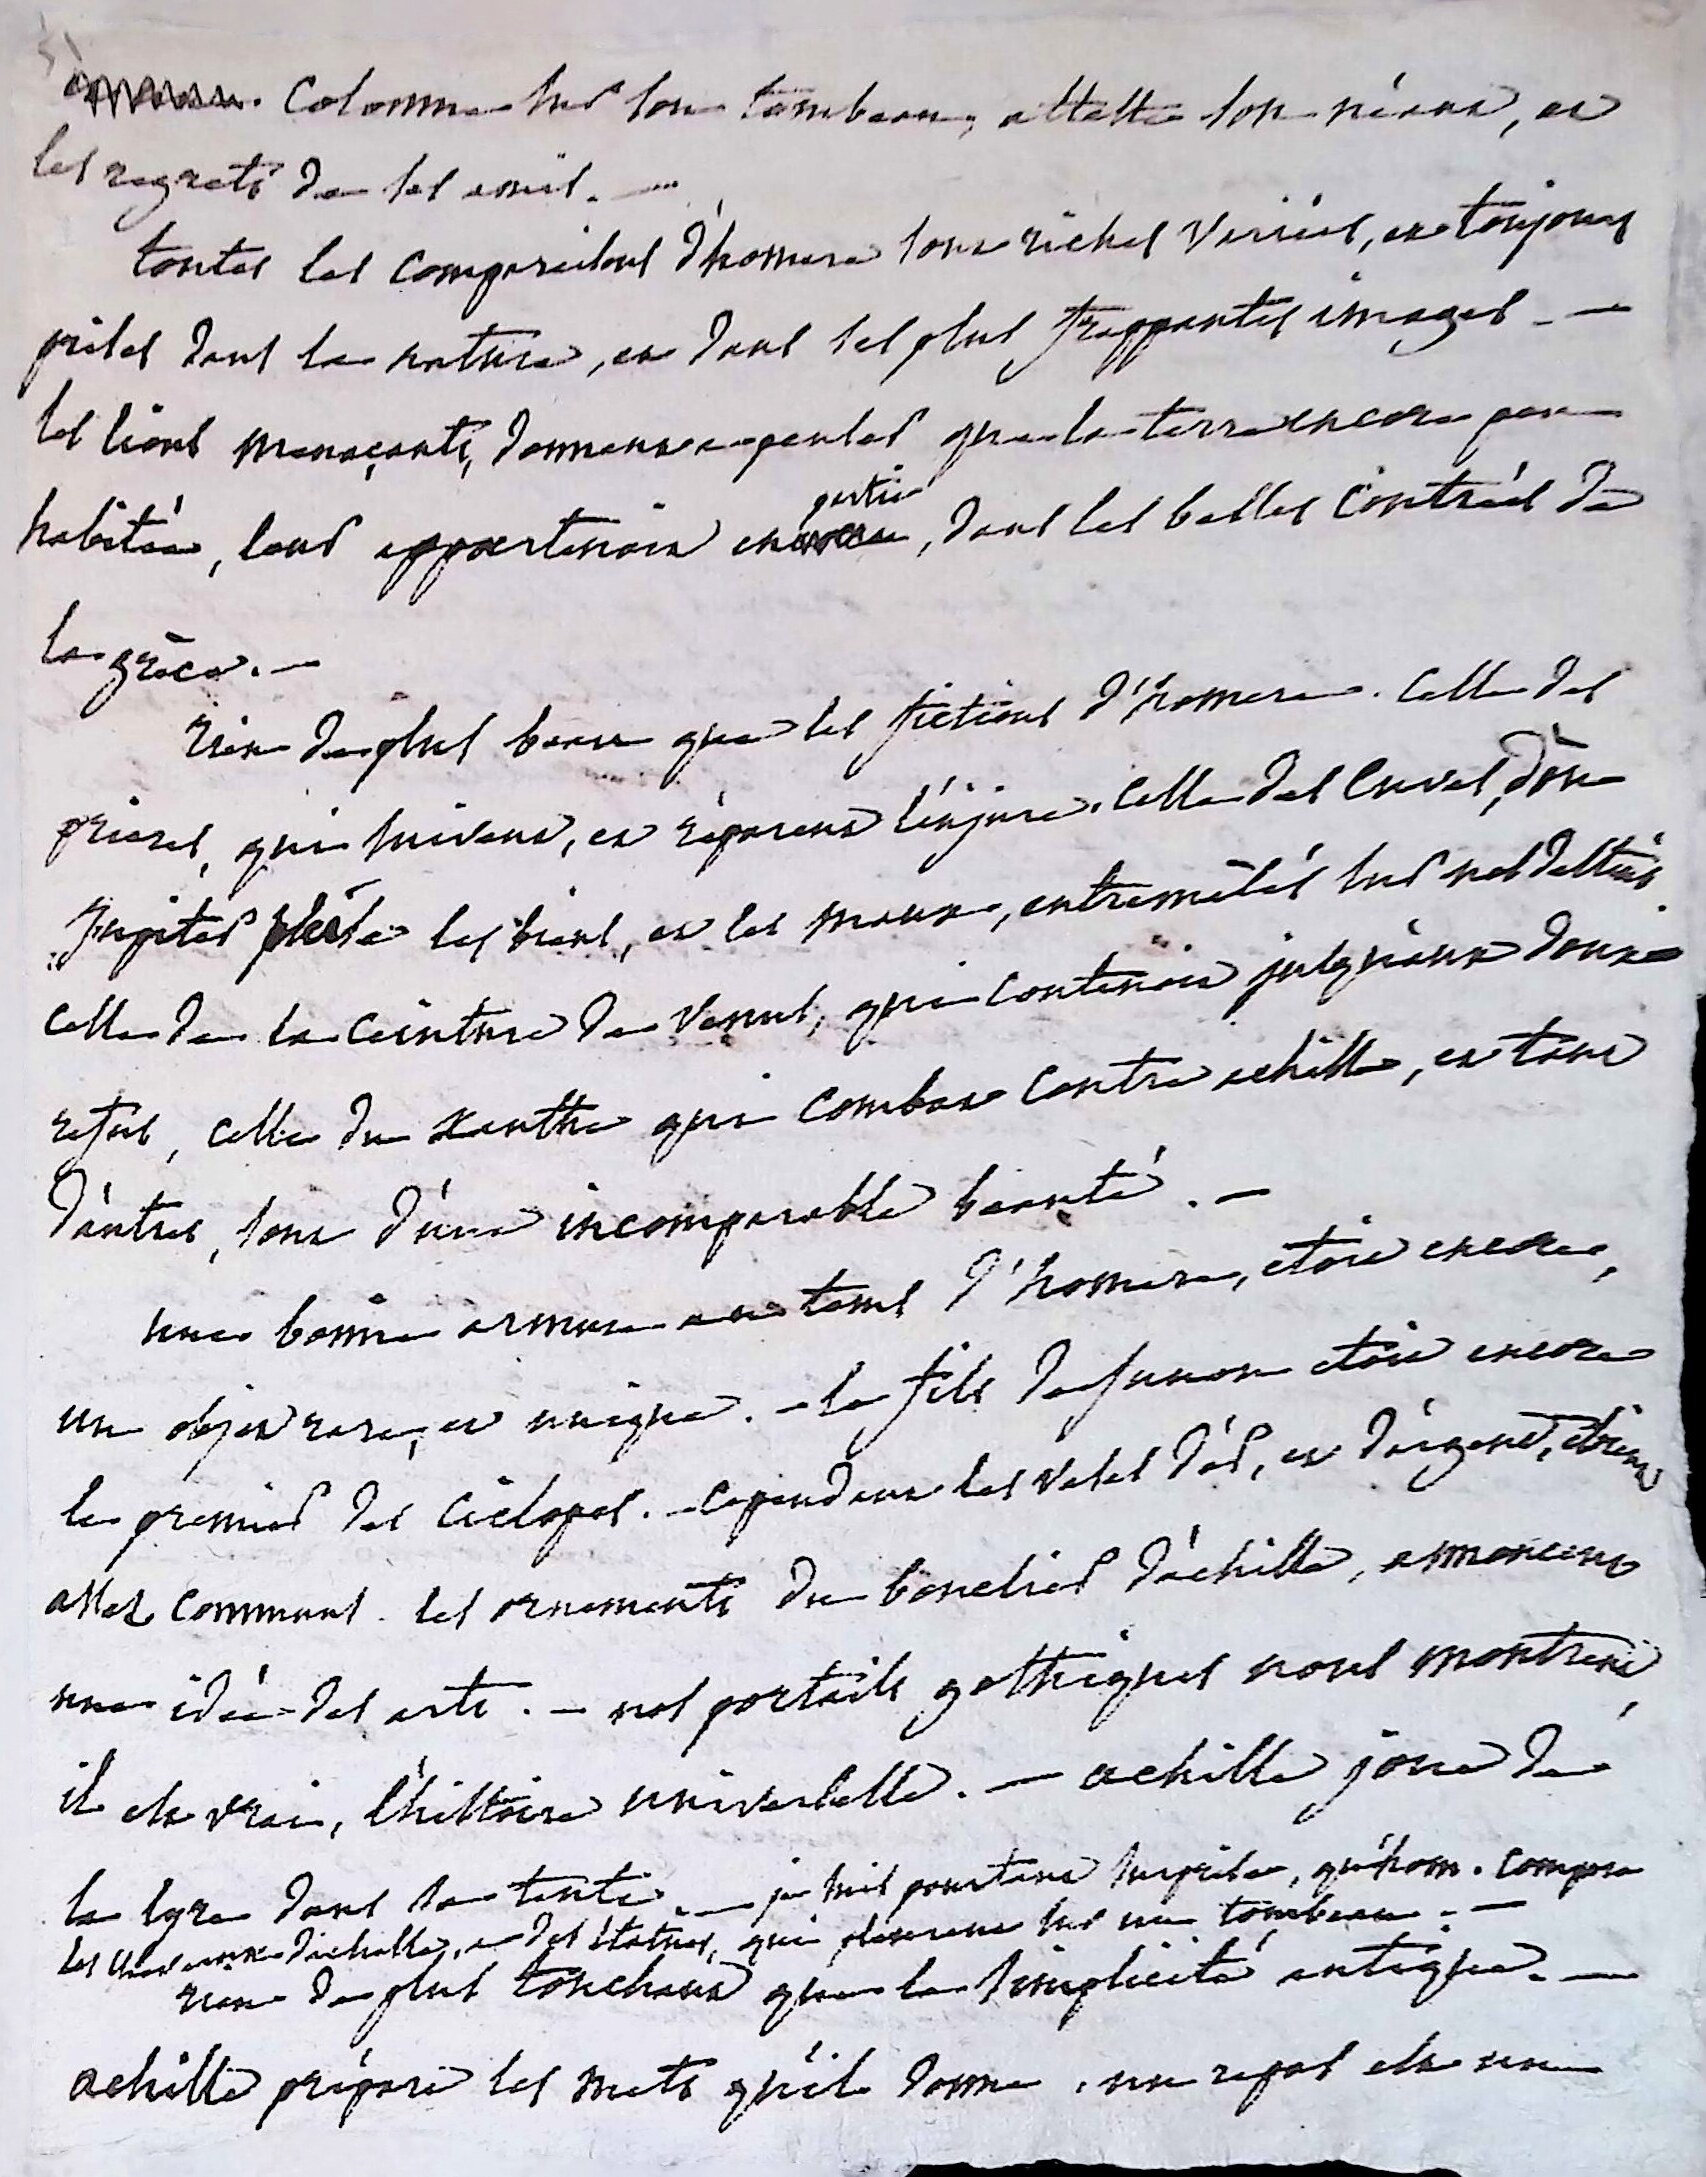 colonne sur son tombeau, atteste son néant, et
les regrets de ses amis. —
toutes les comparaisons d'homere sont riches variées, et toujours
prises dans la nature, et dans ses plus frappantes images. —
les lions menaçants, donnent a penser que la terre encore peu
habitée, leur appartenoit en partie, dans les belles contrées de
la grèce. —
rien de plus beau que les fictions d'homere. celle des
prieres, qui suivent, et réparent l'injure. celle des cuves, dòu
Jupiter les biens, et les maux, entremêlés sur nos destins.
celle de la ceinture de Venus, qui contenoit jusqu'aux doux
refus, celle du xanthe qui combat contre achille, et tant
d'autres, sont d'une incomparable beauté. —
une bonne armure au tems d'homere, étoit encore,
un objet rare, et unique. — le fils de Junon étoit encore
le premier des ciclopes. — cependant les vases d'or, et d'argent, étoient
assez communs. les ornements du bouclier d'achille, annoncent
une idée des arts. — nos portails gothiques nous montrent,
il est vrai, l'histoire universelle. — achille joue de
la lyre dans sa tente. — je suis pourtant surprise, qu'hom. compare
les d'achille, a des statues, qui pleurent sur un tombeau. —
rien de plus touchant que la simplicité antique. —
achille prépare les mets qu'il donne. un repas est un